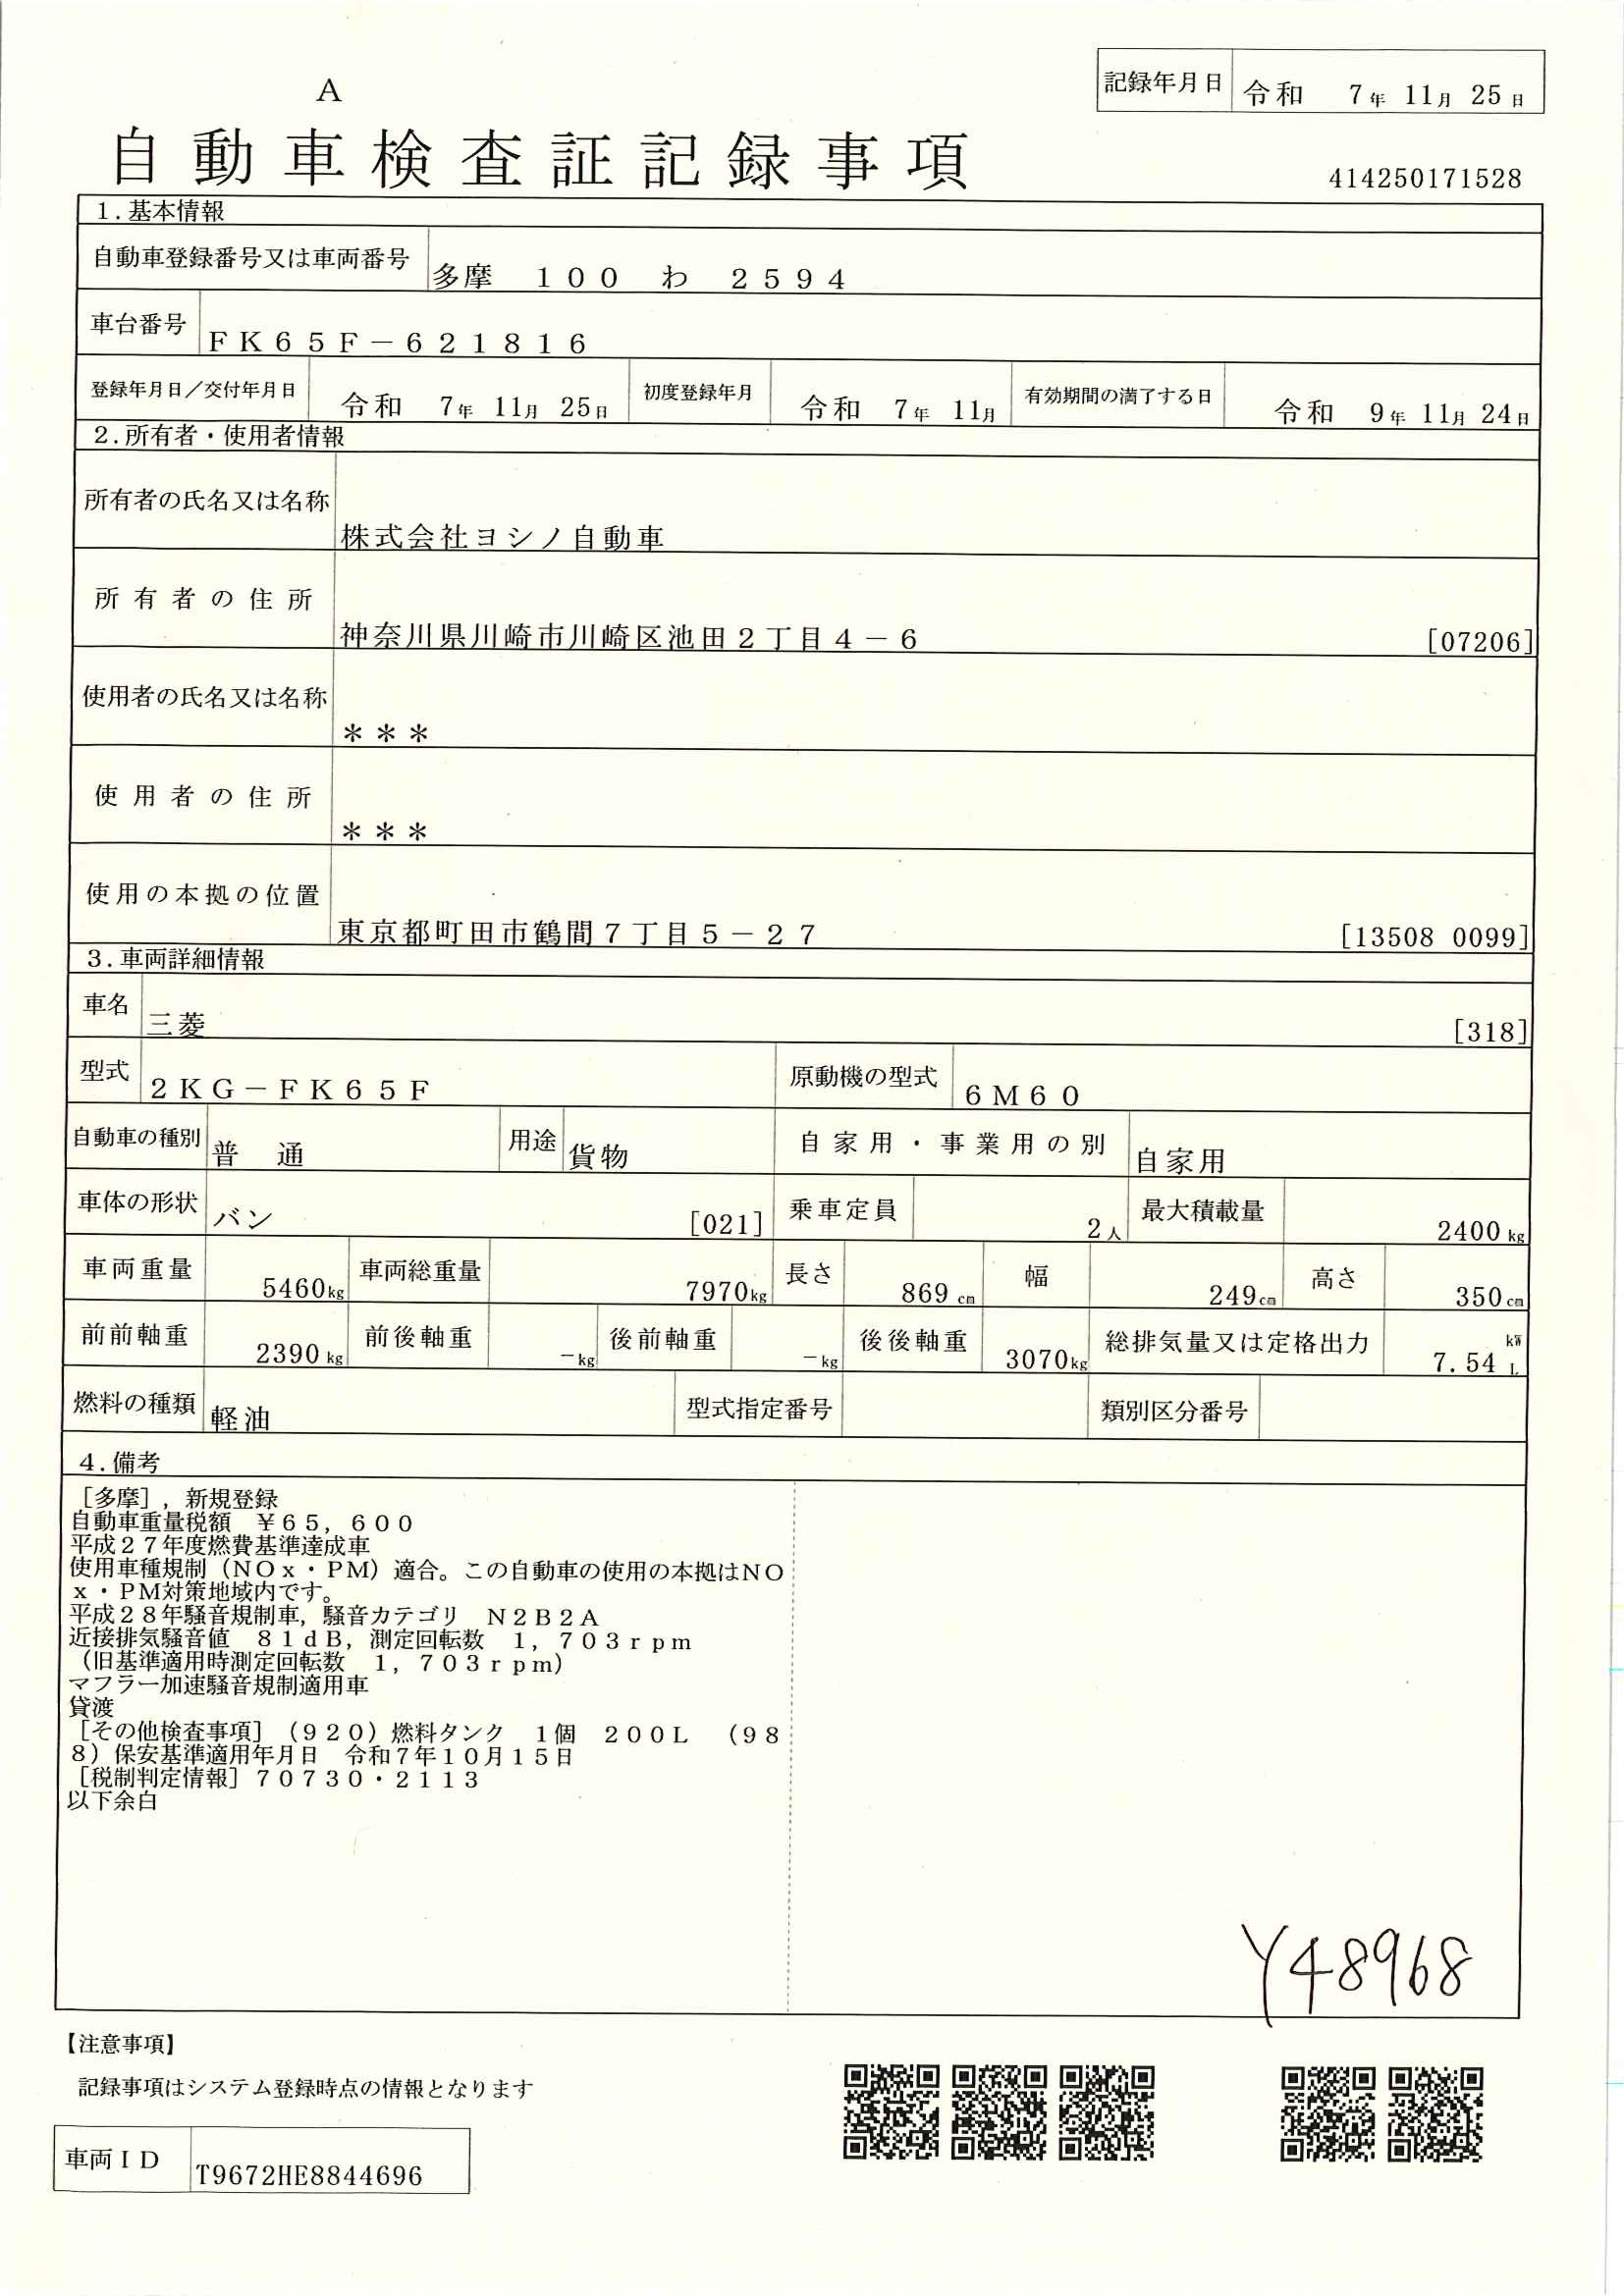 A
記録年月日 令和 7年 11月 25日
自動車検査証記録事項
414250171528
1.基本情報
自動車登録番号又は車両番号 多摩 100 わ 2594
車台番号 FK65F-621816
登録年月日/交付年月日 令和 7年 11月 25日 初度登録年月 令和 7年 11月 有効期間の満了する日 令和 9年 11月 24日
2.所有者・使用者情報
所有者の氏名又は名称 株式会社ヨシノ自動車
所有者の住所 神奈川県川崎市川崎区池田2丁目4-6 [07206]
使用者の氏名又は名称 ***
使用者の住所 ***
使用の本拠の位置 東京都町田市鶴間7丁目5-27 [13508 0099]
3.車両詳細情報
車名 三菱 [318]
型式 2KG-FK65F 原動機の型式 6M60
自動車の種別 普 通 用途 貨物 自家用・事業用の別 自家用
車体の形状 バン [021] 乗車定員 2人 最大積載量 2400kg
車両重量 5460kg 車両総重量 7970kg 長さ 869cm 幅 249cm 高さ 350cm
前前軸重 2390kg 前後軸重 -kg 後前軸重 -kg 後後軸重 3070kg 総排気量又は定格出力 7.54 kW L
燃料の種類 軽油 型式指定番号 類別区分番号
4.備考
[多摩],新規登録
自動車重量税額 ¥65,600
平成27年度燃費基準達成車
使用車種規制(NOx・PM)適合。この自動車の使用の本拠はNO
x・PM対策地域内です。
平成28年騒音規制車,騒音カテゴリ N2B2A
近接排気騒音値 81dB,測定回転数 1,703rpm
(旧基準適用時測定回転数 1,703rpm)
マフラー加速騒音規制適用車
貸渡
[その他検査事項](920)燃料タンク 1個 200L (98
8)保安基準適用年月日 令和7年10月15日
[税制判定情報]70730・2113
以下余白
Y48968
【注意事項】
記録事項はシステム登録時点の情報となります
車両ID T9672HE8844696